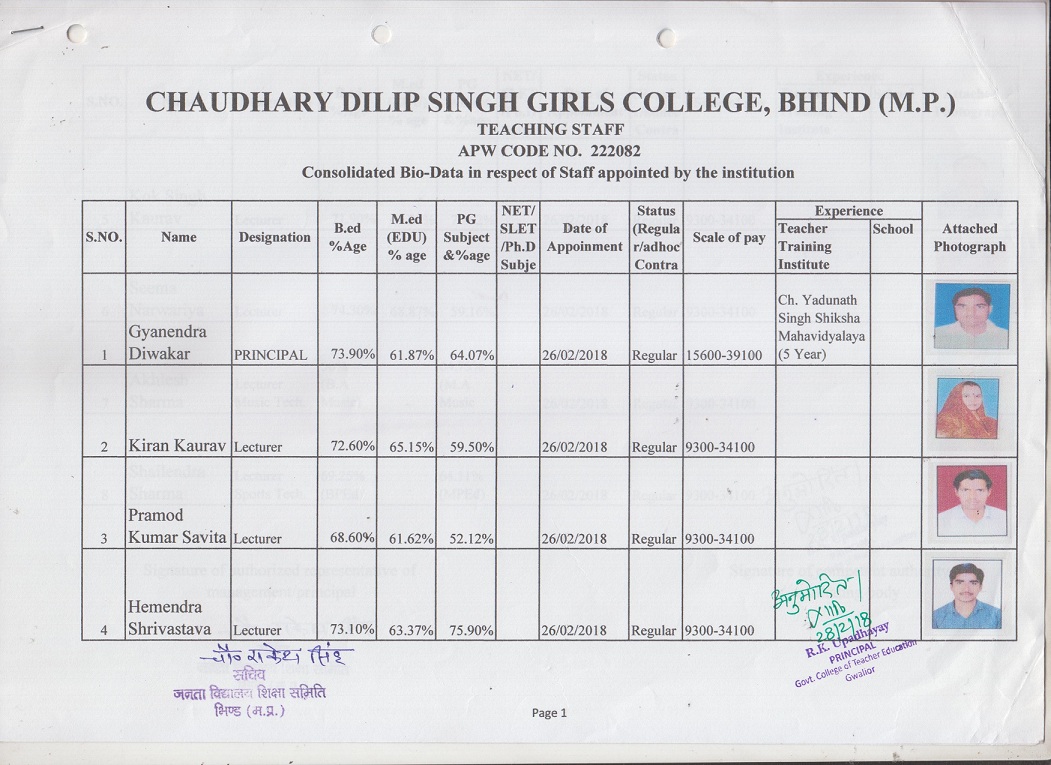 CHAUDHARY DILIP SINGH GIRLS COLLEGE, BHIND (M.P.)
TEACHING STAFF
APW CODE NO. 222082
Consolidated Bio-Data in respect of Staff appointed by the institution
S.NO. Name Designation B.ed %Age M.ed (EDU) % age PG Subject &%age NET/ SLET /Ph.D Subje Date of Appoinment Status (Regula r/adhoc Contra Scale of pay Experience Teacher Training Institute School Attached Photograph
1 Gyanendra Diwakar PRINCIPAL 73.90% 61.87% 64.07% 26/02/2018 Regular 15600-39100 Ch. Yadunath Singh Shiksha Mahavidyalaya (5 Year)
2 Kiran Kaurav Lecturer 72.60% 65.15% 59.50% 26/02/2018 Regular 9300-34100
3 Pramod Kumar Savita Lecturer 68.60% 61.62% 52.12% 26/02/2018 Regular 9300-34100
4 Hemendra Shrivastava Lecturer 73.10% 63.37% 75.90% 26/02/2018 Regular 9300-34100
अनुमोदित
28/2/18
R.K. Upadhayay
PRINCIPAL
Govt. College of Teacher Education
Gwalior
चौ० राकेश सिंह
सचिव
जनता विद्यालय शिक्षा समिति
भिण्ड (म.प्र.)
Page 1